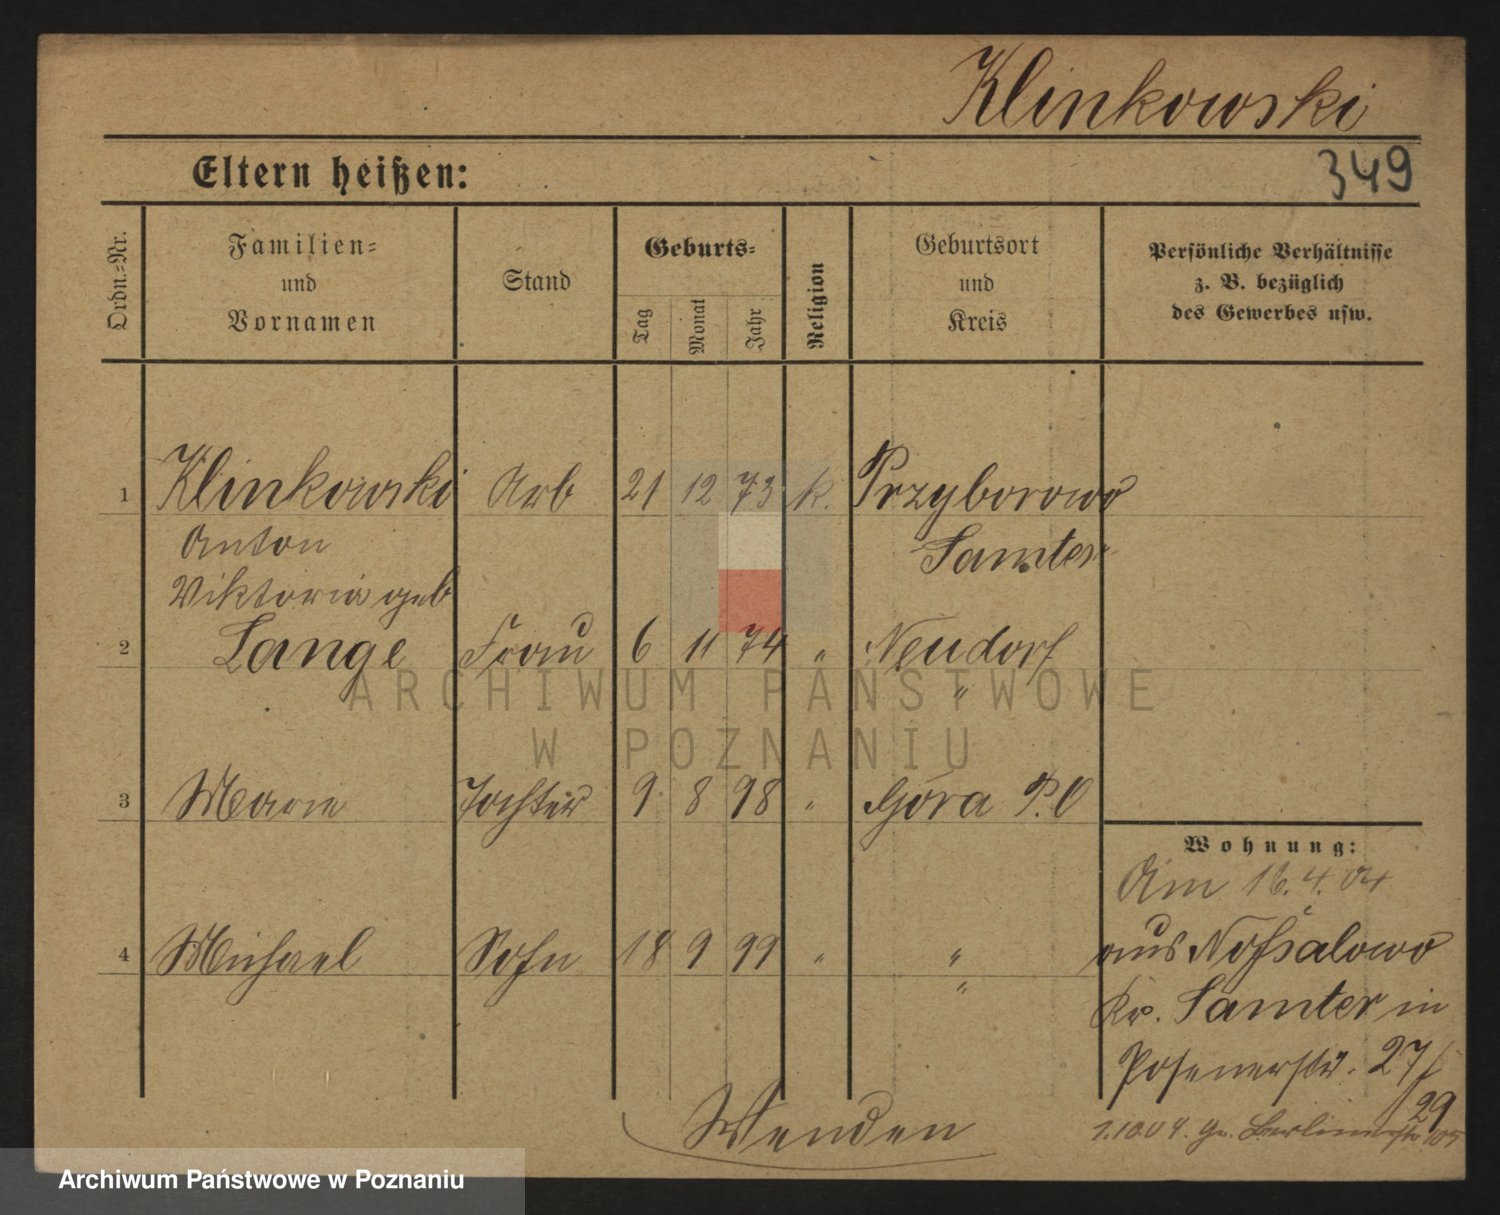 Klinkowski
Eltern heißen:
349
Ordn.-Nr.
Familien-
und
Vornamen
Stand
Geburts-
Tag
Monat
Jahr
Religion
Geburtsort
und
Kreis
Persönliche Verhältnisse
z. B. bezüglich
des Gewerbes usw.
1 Klinkowski Arb 21 12 73 k. Przyborowo
Anton Samter
Viktoria geb
2 Lange Frau 6 11 74 " Neudorf
"
ARCHIWUM PAŃSTWOWE
W POZNANIU
3 Marie Tochter 9 8 98 " Góra P.O
4 Michael Sohn 18 9 99 " "
"
Wohnung:
Am 16.4.04
aus Nossalowo
Kr. Samter in
Posenerstr. 27/
29
1.10.04. Gr. Berlinerstr. 105
Wenden
Archiwum Państwowe w Poznaniu